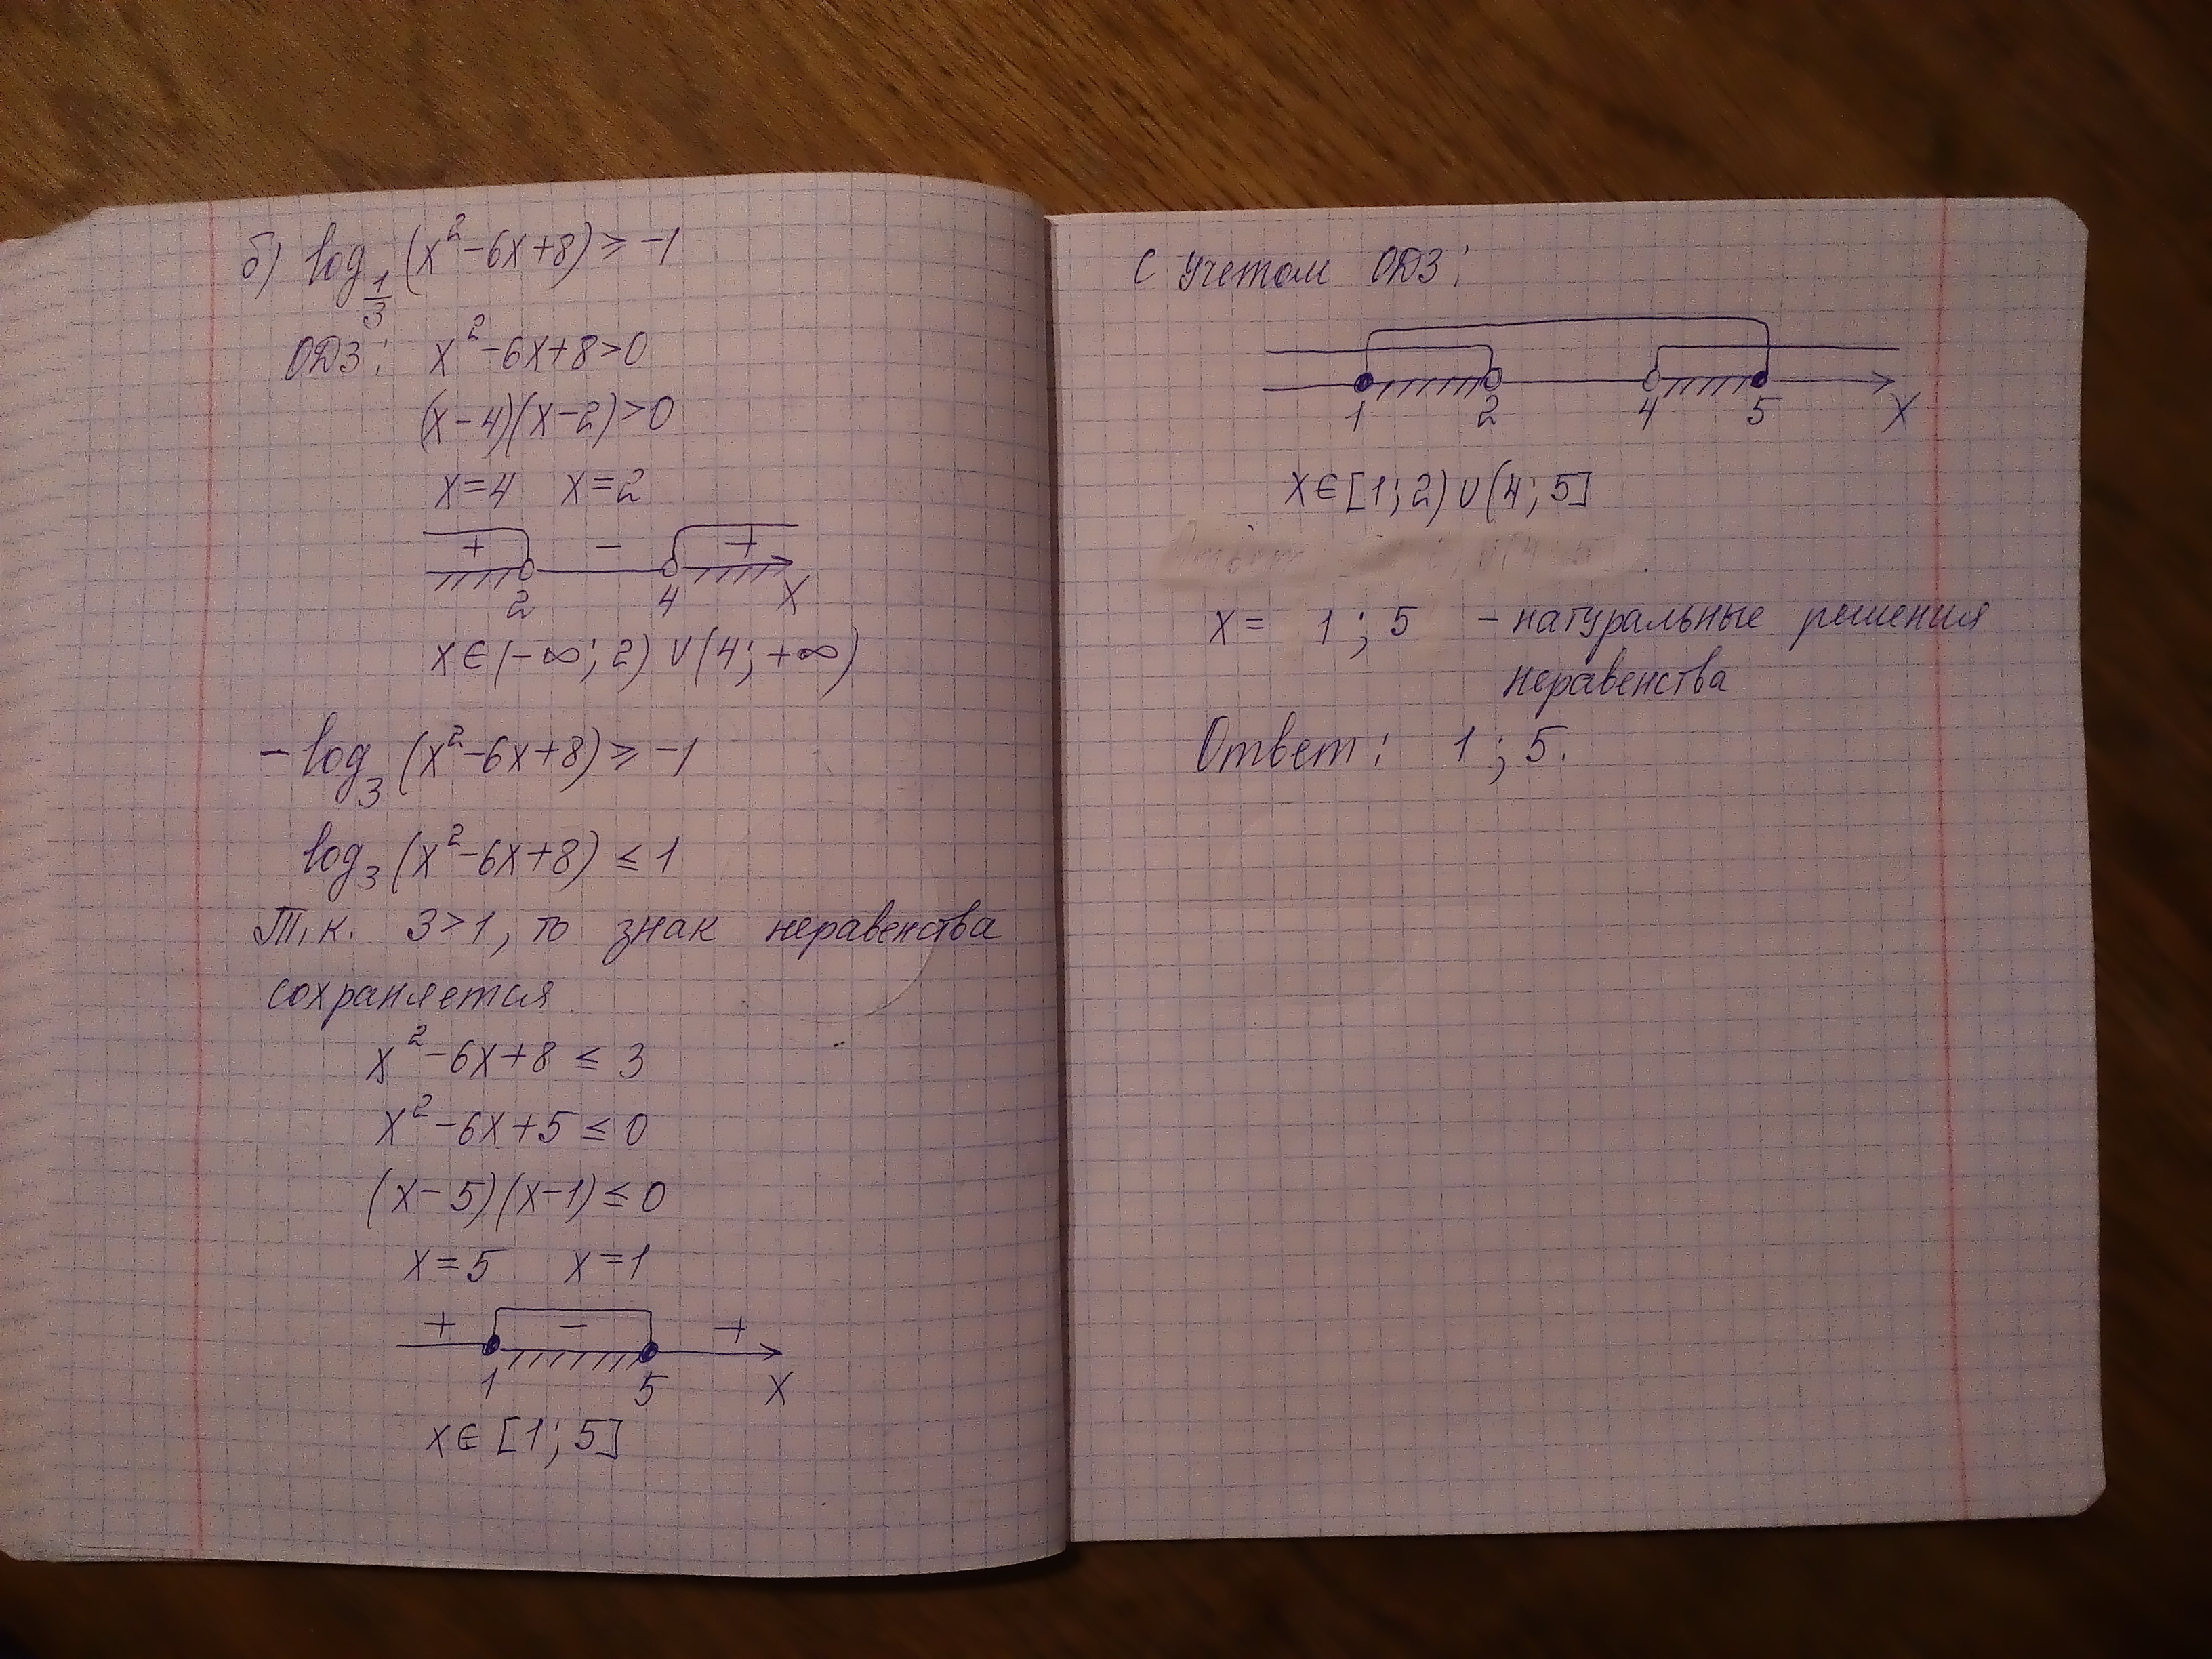 б) log_{1/3} (x²-6x+8) ≥ -1
ОДЗ: x²-6x+8>0
(x-4)(x-2)>0
x=4 x=2
+ - +
2 4 X
x∈(-∞; 2) ∪ (4; +∞)
-log₃ (x²-6x+8) ≥ -1
log₃ (x²-6x+8) ≤ 1
Т.к. 3>1, то знак неравенства
сохраняется
x²-6x+8 ≤ 3
x²-6x+5 ≤ 0
(x-5)(x-1) ≤ 0
x=5 x=1
+ - +
1 5 X
x∈[1; 5]
С учетом ОДЗ:
1 2 4 5 X
x∈[1; 2) ∪ (4; 5]
x = 1; 5 - натуральные решения
неравенства
Ответ: 1; 5.